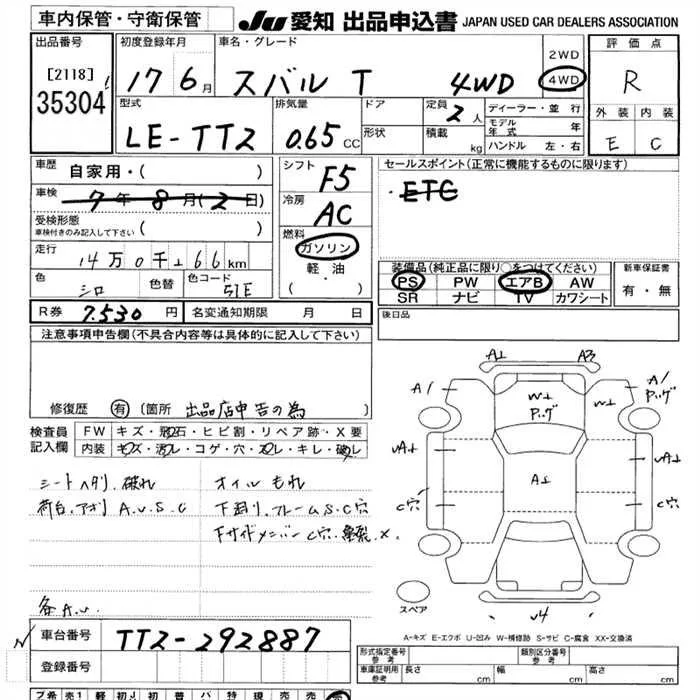 車内保管・守衛保管
JU 愛知 出品申込書 JAPAN USED CAR DEALERS ASSOCIATION
出品番号
[2118]
35304
初度登録年月
17 6月
車名・グレード
スバル T 4WD
2WD
4WD
評価点
R
型式
LE-TT2
排気量
0.65 CC
ドア
形状
定員
2人
積載 kg
ディーラー・並行
モデル年式 年
ハンドル 左・右
外装 内装
E C
車歴
自家用・( )
車検
7年8月(2日)
受検形態
車検付きのみ記入して下さい( )
走行
14万0千166km
色
シロ
色替
色コード
51E
シフト
F5
冷房
AC
燃料
ガソリン
軽・油
( )
セールスポイント(正常に機能するものに限ります)
ETC
装備品(純正品に限り○をつけてください)
PS PW エアB AW
SR ナビ TV カワシート
新車保証書
有・無
R券 7.530円
名変通知期限 月 日
後日品
注意事項申告欄(不具合内容等は具体的に記入して下さい)
修復歴 有 〔箇所 出品店申告の為 〕
検査員
記入欄
FW キズ・飛石・ヒビ割・リペア跡・X要
内装 キズ・汚レ・コゲ・穴・スレ・キレ・破レ
シートヘタリ、破れ オイルもれ
荷台、アオリ A.U.S.C 下廻り、フレームS.C穴
下サイドメンバー C穴、亀裂、X.
各A.U.
A⊥ A3
A/ A/
W⊥ W⊥ Pッグ
Pッグ
UA⊥ A⊥ UA⊥
C穴 C穴
スペア
U4
A-キズ E-エクボ U-凹み W-補修跡 S-サビ C-腐食 XX-交換済
車台番号 TT2-292887
登録番号
形式指定番号
参考
類別区分番号
参考
車庫証明用
参考
長さ cm
幅 cm
高さ cm